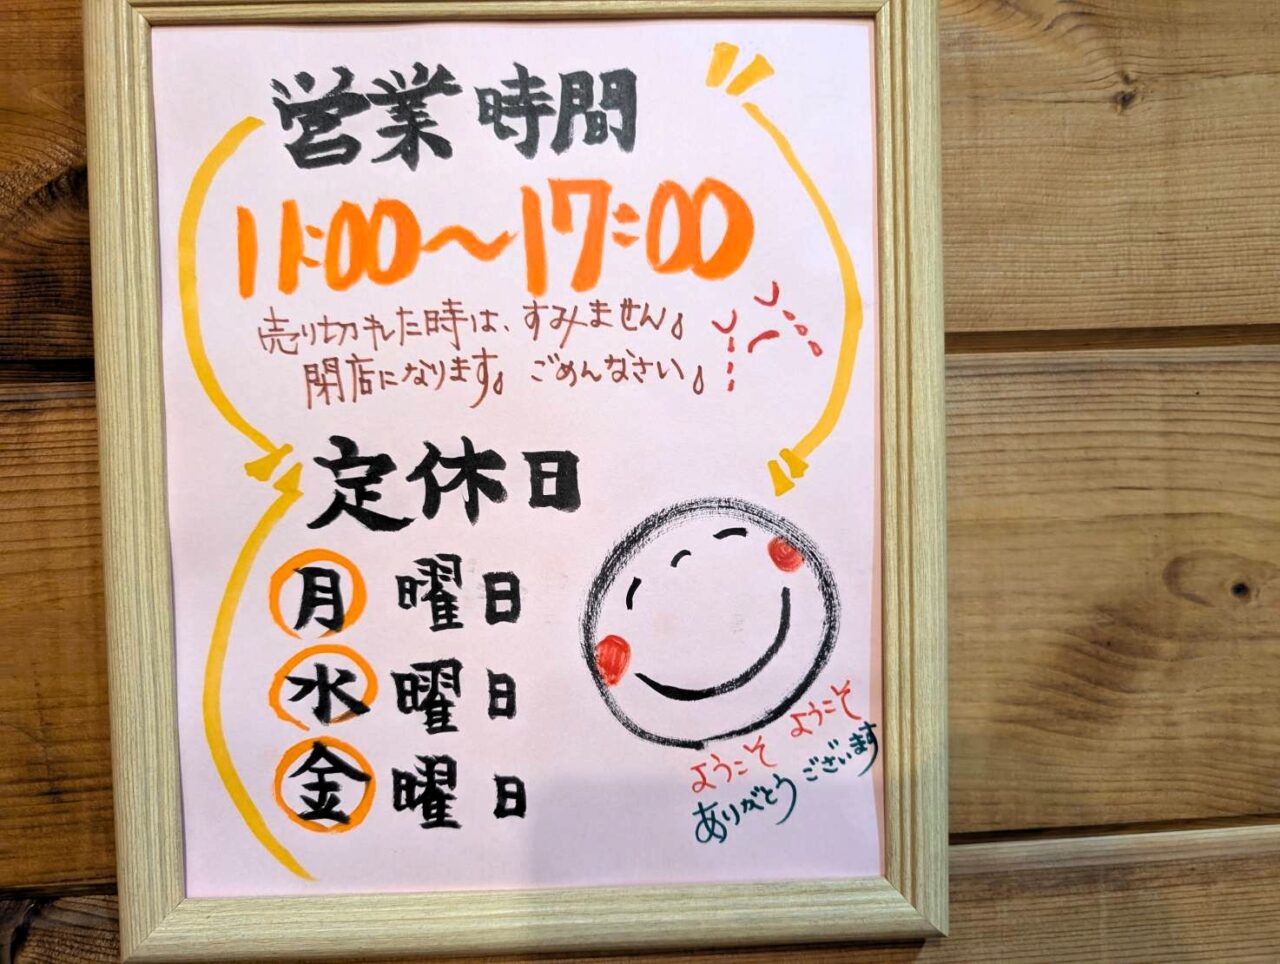 営業時間
11:00～17:00
売り切れた時は、すみません。
閉店になります。ごめんなさい。
定休日
月曜日
水曜日
金曜日
ようこそ ようこそ
ありがとうございます